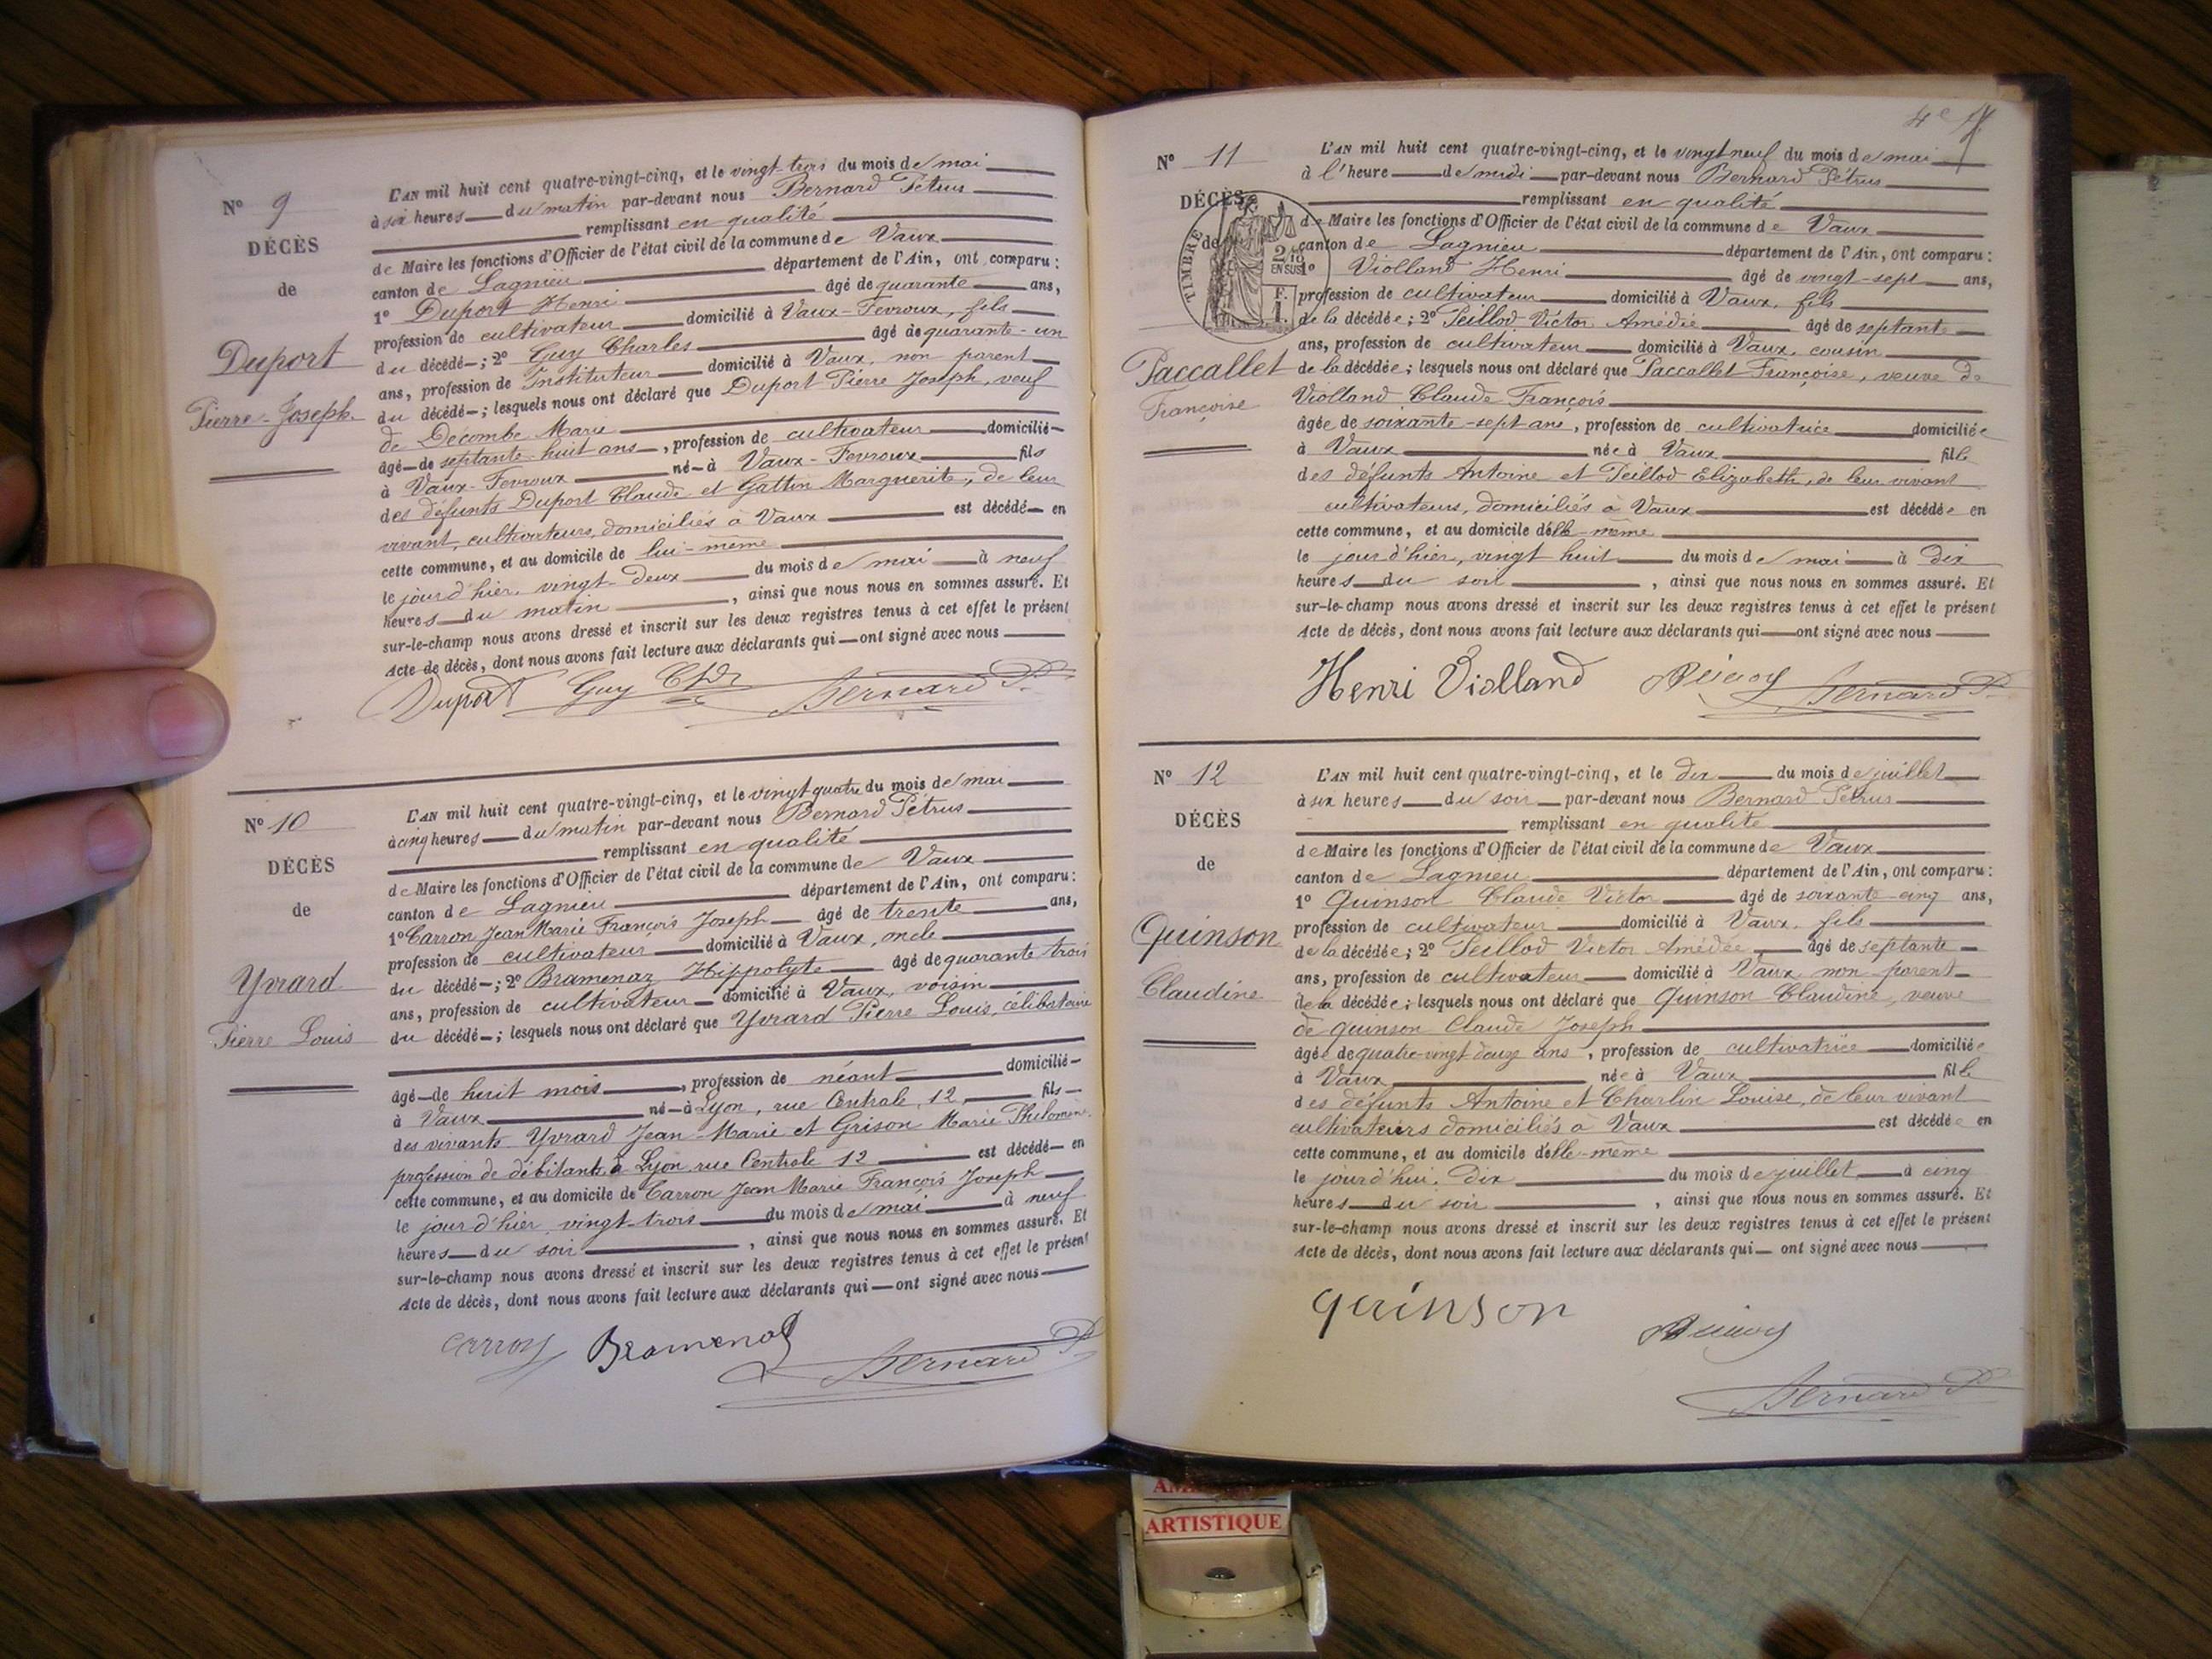 Nº 9
DÉCÈS
de
Duport
Pierre-Joseph
L'AN mil huit cent quatre-vingt-cinq, et le vingt-trois du mois de mai
à six heures du matin par-devant nous Bernard Pétrus
remplissant en qualité
de Maire les fonctions d'Officier de l'état civil de la commune de Vaux
canton de Lagnieu département de l'Ain, ont comparu :
1º Duport Henri âgé de quarante ans,
profession de cultivateur domicilié à Vaux-Fevroux, fils
du décédé ; 2º Guy Charles âgé de quarante-un
ans, profession de Instituteur domicilié à Vaux, non parent
du décédé ; lesquels nous ont déclaré que Duport Pierre Joseph, veuf
de Decombe Marie
âgé de septante-huit ans, profession de cultivateur domicilié
à Vaux-Fevroux né à Vaux-Fevroux fils
des défunts Duport Claude et Gattin Marguerite, de leur
vivant, cultivateurs, domiciliés à Vaux est décédé en
cette commune, et au domicile de lui-même
le jour d'hier, vingt-deux du mois de mai à neuf
heures du matin, ainsi que nous nous en sommes assuré. Et
sur-le-champ nous avons dressé et inscrit sur les deux registres tenus à cet effet le présent
Acte de décès, dont nous avons fait lecture aux déclarants qui ont signé avec nous
Duport Guy Ch Bernard P.
Nº 10
DÉCÈS
de
Yvrard
Pierre Louis
L'AN mil huit cent quatre-vingt-cinq, et le vingt quatre du mois de mai
à cinq heures du matin par-devant nous Bernard Pétrus
remplissant en qualité
de Maire les fonctions d'Officier de l'état civil de la commune de Vaux
canton de Lagnieu département de l'Ain, ont comparu :
1º Carron Jean Marie François Joseph âgé de trente ans,
profession de cultivateur domicilié à Vaux, oncle
du décédé ; 2º Bramenaz Hippolyte âgé de quarante trois
ans, profession de cultivateur domicilié à Vaux, voisin
du décédé ; lesquels nous ont déclaré que Yvrard Pierre Louis, célibataire
âgé de huit mois, profession de néant domicilié
à Vaux né à Lyon, rue Centrale, 12, fils
des vivants Yvrard Jean-Marie et Grison Marie Philomène
profession de débitants à Lyon rue Centrale 12 est décédé en
cette commune, et au domicile de Carron Jean Marie François Joseph
le jour d'hier, vingt-trois du mois de mai à neuf
heures du soir, ainsi que nous nous en sommes assuré. Et
sur-le-champ nous avons dressé et inscrit sur les deux registres tenus à cet effet le présent
Acte de décès, dont nous avons fait lecture aux déclarants qui ont signé avec nous
Carron Bramenaz Bernard P.
4e
Nº 11
DÉCÈS
de
Paccallet
Françoise
TIMBRE
2/10
EN SUS
F.
1.
L'AN mil huit cent quatre-vingt-cinq, et le vingt neuf du mois de mai
à l'heure de midi par-devant nous Bernard Pétrus
remplissant en qualité
de Maire les fonctions d'Officier de l'état civil de la commune de Vaux
canton de Lagnieu département de l'Ain, ont comparu :
1º Violland Henri âgé de vingt-sept ans,
profession de cultivateur domicilié à Vaux, fils
de la décédée ; 2º Peillod Victor Amédée âgé de septante
ans, profession de cultivateur domicilié à Vaux, cousin
de la décédée ; lesquels nous ont déclaré que Paccallet Françoise, veuve de
Violland Claude François
âgée de soixante-sept ans, profession de cultivatrice domiciliée
à Vaux née à Vaux fille
des défunts Antoine et Peillod Elizabeth, de leur vivant
cultivateurs, domiciliés à Vaux est décédée en
cette commune, et au domicile d'elle-même
le jour d'hier, vingt huit du mois de mai à dix
heures du soir, ainsi que nous nous en sommes assuré. Et
sur-le-champ nous avons dressé et inscrit sur les deux registres tenus à cet effet le présent
Acte de décès, dont nous avons fait lecture aux déclarants qui ont signé avec nous
Henri Violland Bernard P.
Nº 12
DÉCÈS
de
Quinson
Claudine
L'AN mil huit cent quatre-vingt-cinq, et le dix du mois de juillet
à six heures du soir par-devant nous Bernard Pétrus
remplissant en qualité
de Maire les fonctions d'Officier de l'état civil de la commune de Vaux
canton de Lagnieu département de l'Ain, ont comparu :
1º Quinson Claude Victor âgé de soixante-cinq ans,
profession de cultivateur domicilié à Vaux, fils
de la décédée ; 2º Peillod Victor Amédée âgé de septante
ans, profession de cultivateur domicilié à Vaux non-parent
de la décédée ; lesquels nous ont déclaré que Quinson Claudine, veuve
de Quinson Claude Joseph
âgée de quatre-vingt douze ans, profession de cultivatrice domiciliée
à Vaux née à Vaux fille
des défunts Antoine et Charlin Louise, de leur vivant
cultivateurs domiciliés à Vaux est décédée en
cette commune, et au domicile d'elle-même
le jourd'hui, dix du mois de juillet à cinq
heures du soir, ainsi que nous nous en sommes assuré. Et
sur-le-champ nous avons dressé et inscrit sur les deux registres tenus à cet effet le présent
Acte de décès, dont nous avons fait lecture aux déclarants qui ont signé avec nous
quinson
Bernard P.
ARTISTIQUE